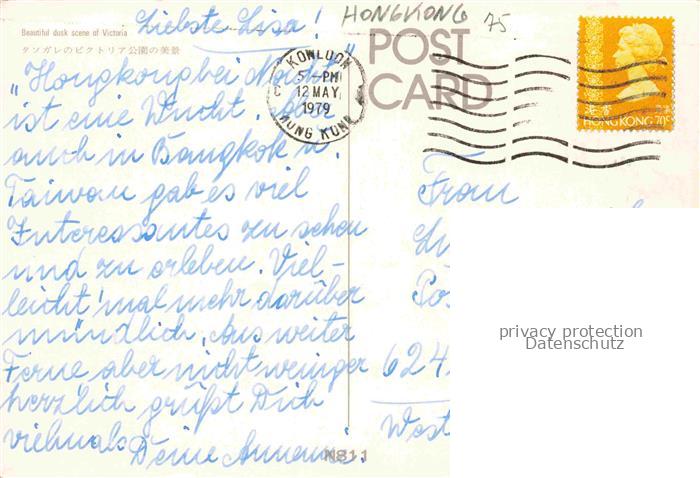 Liebste Lisa!
HONGKONG
75.
Beautiful dusk scene of Victoria
タンガレのビクトリア公園の美景
POST
CARD
KOWLOON
5-PM
12 MAY
1979
HONG KONG
香港
HONG KONG 70c
„Hongkong bei Nacht"
ist eine Wucht. Aber
auch in Bangkok u.
Taiwan gab es viel
Interessantes zu sehen
und zu erleben. Viel-
leicht mal mehr darüber
mündlich. Aus weiter
Ferne aber nicht weniger
herzlich grüßt Dich
vielmals
Deine
Frau
624
West
N811
privacy protection
Datenschutz